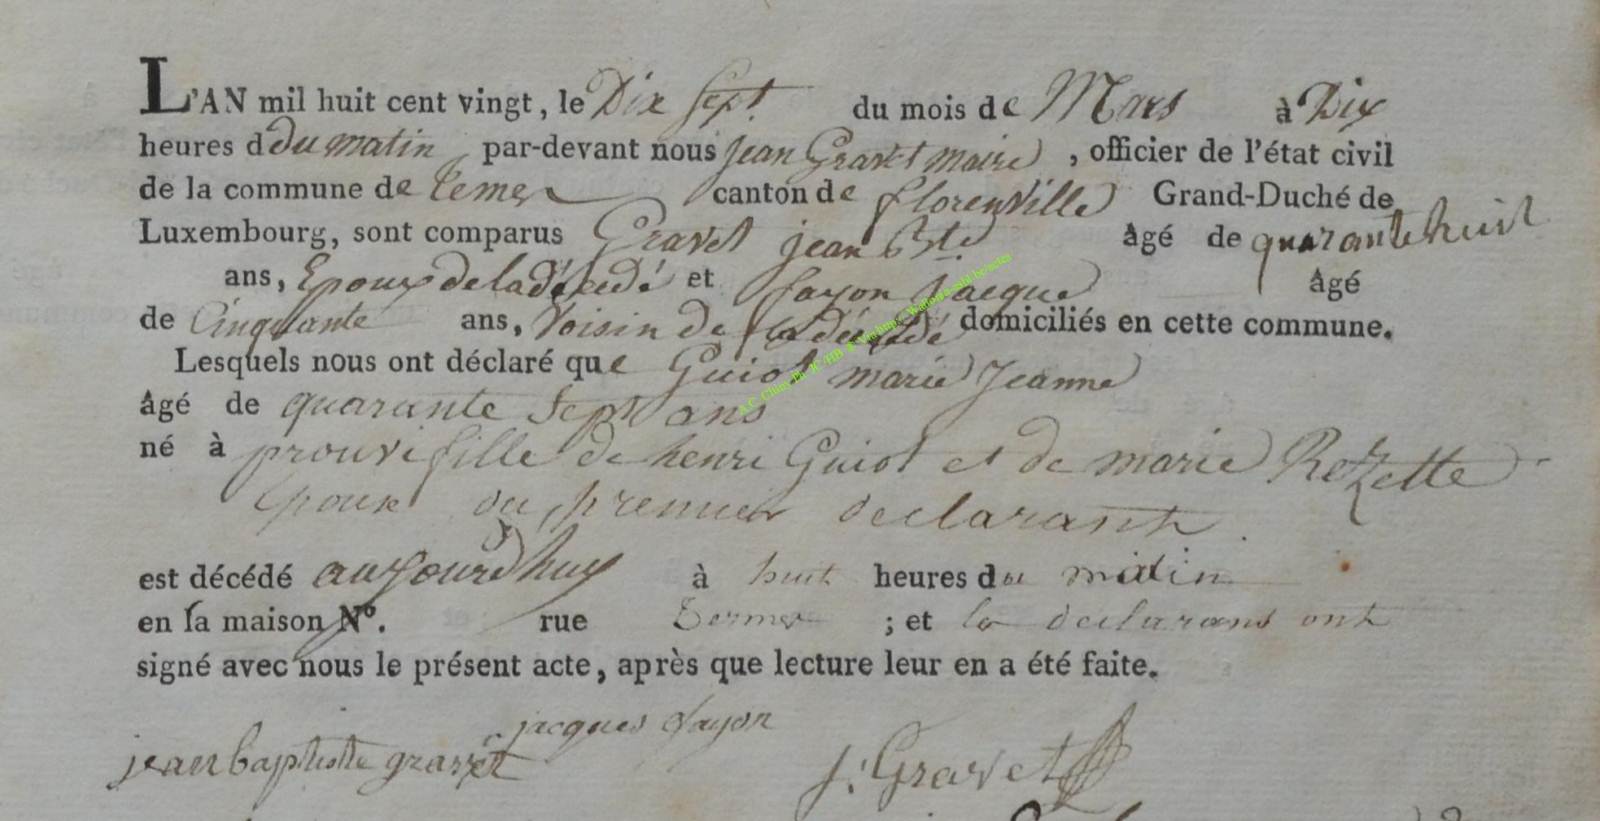 L'AN mil huit cent vingt, le Dix Sept du mois de Mars à Dix
heures d du matin par-devant nous jean Gravet maire, officier de l'état civil
de la commune de canton de florenville Grand-Duché de
Luxembourg, sont comparus Gravet jean Bte âgé de quarante huit
ans, Epoux de la décédé et fayon Jacque âgé
de Cinquante ans, voisin de la décédé domiciliés en cette commune.
Lesquels nous ont déclaré que Guiot marie Jeanne
âgé de quarante Sept ans
né à prouvi fille de henri Guiot et de marie Rozette
Epoux du premier declarant
est décédé aujourd'huy à huit heures du matin
en la maison N°. rue ; et les declarans ont
signé avec nous le présent acte, après que lecture leur en a été faite.
jacques fayon
jean baptiste gravet
j: Gravet